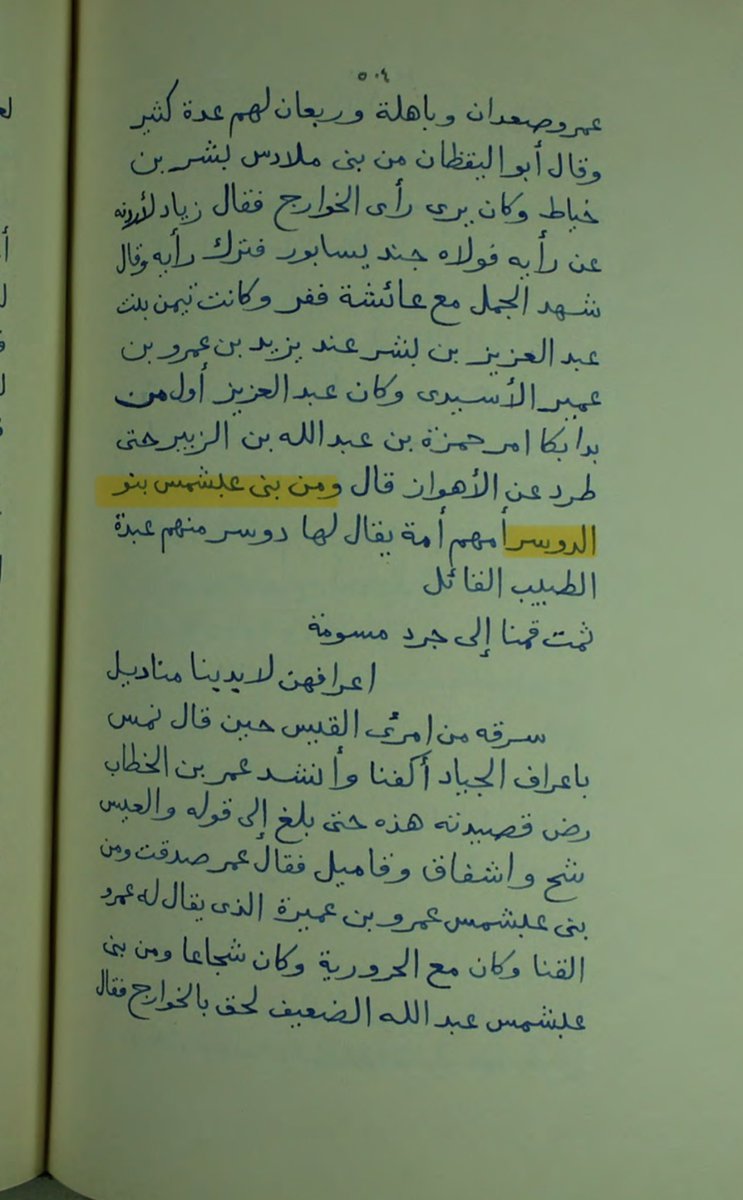 ٥٠٤
عمرو وصعدان وباهلة وربعان لهم عدة كثير
وقال أبو اليقظان من بنى ملادس بشر بن
خياط وكان يرى رأى الخوارج فقال زياد لأردنه
عن رأيه فولاه جند يسابور فترك رأيه وقال
شهد الجمل مع عائشة ففر وكانت تيمن بنت
عبد العزيز بن بشر عند يزيد بن عمرو بن
عمير الأسيدى وكان عبد العزيز أول من
بدا بكا امر حمزة بن عبد الله بن الزبير حتى
طرد عن الأهواز قال ومن بنى عبشمس بنو
الدوسر أمهم أمة يقال لها دوسر منهم عبدة
الطبيب القائل
ثمت قمنا إلى جرد مسومة
اعرافهن لايدينا مناديل
سرقه من امرئ القيس حين قال نمس
باعراف الجياد أكفنا وأنشد عمر بن الخطاب
رض قصيدته هذه حتى بلغ إلى قوله والعيس
شح واشفاق وقاميل فقال عمر صدقت ومن
بنى عبشمس عمرو بن عميرة الذى يقال له عمرو
القنا وكان مع الحرورية وكان شجاعا ومن بنى
عبشمس عبد الله الضعيف لحق بالخوارج فقال